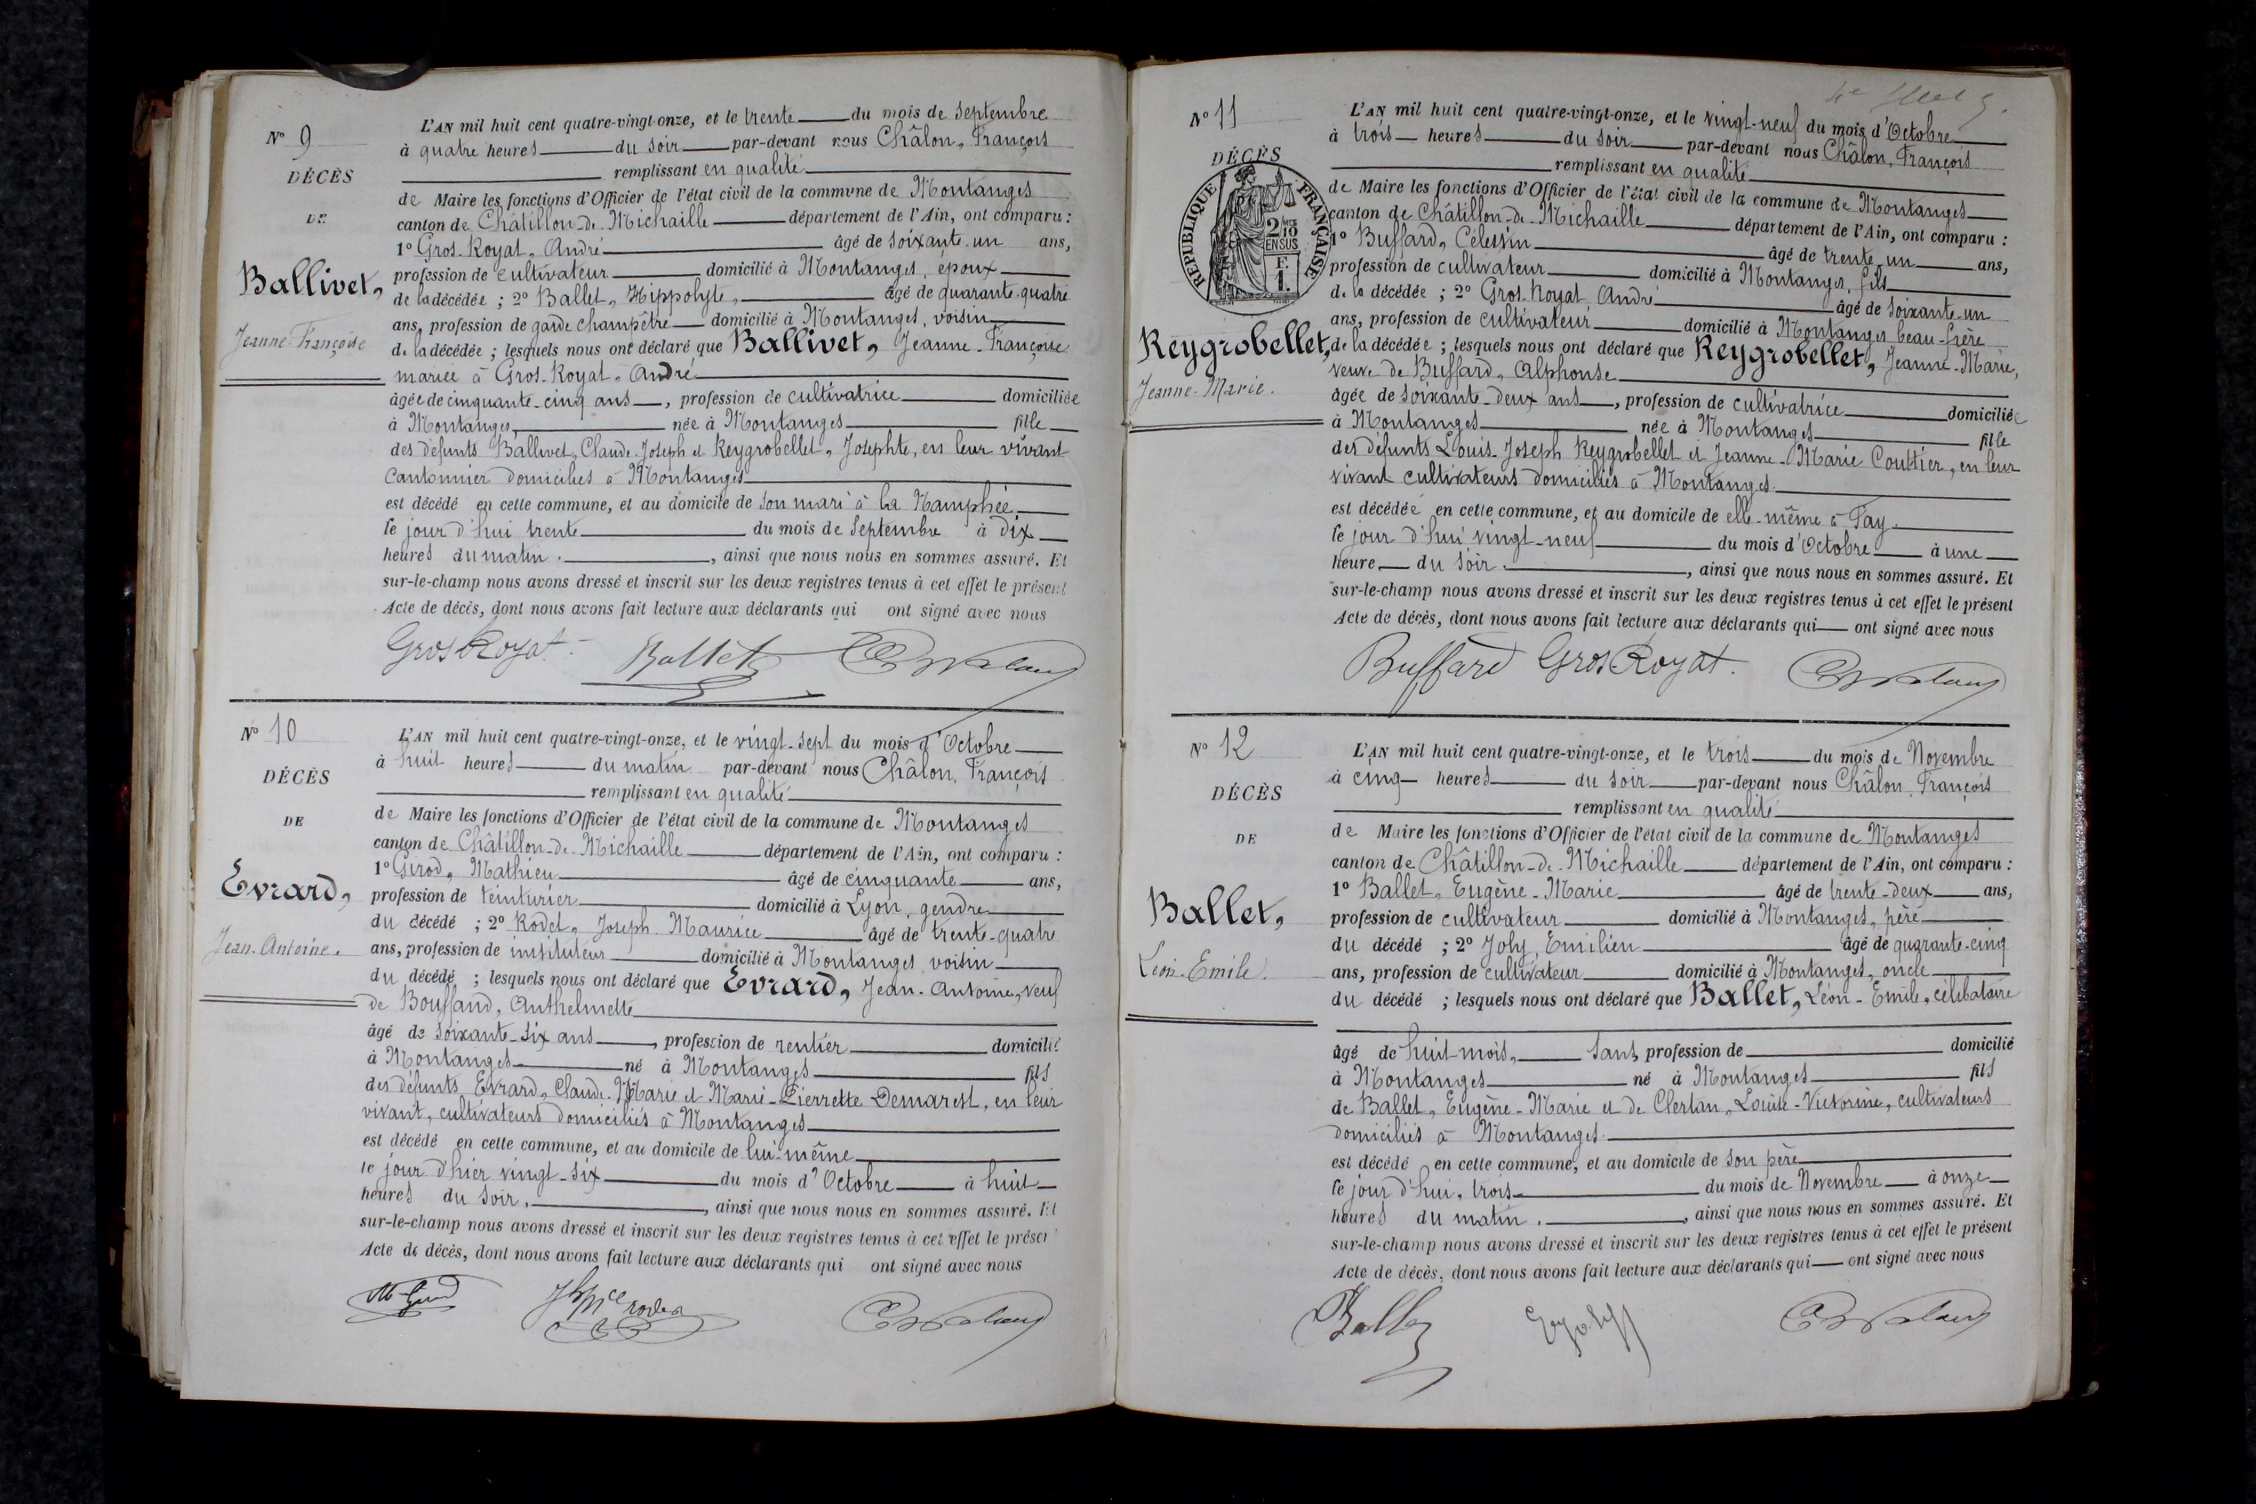 N° 9
DÉCÈS
DE
Ballivet,
Jeanne-Françoise
L'AN mil huit cent quatre-vingt-onze, et le trente du mois de Septembre
à quatre heures du soir par-devant nous Châlon, François
remplissant en qualité
de Maire les fonctions d'Officier de l'état civil de la commune de Montanges
canton de Châtillon-de-Michaille département de l'Ain, ont comparu :
1° Gros-Royat, André âgé de soixante-un ans,
profession de cultivateur domicilié à Montanges, époux
de la décédée ; 2° Ballet, Hippolyte, âgé de quarante-quatre
ans, profession de garde champêtre domicilié à Montanges, voisin
de la décédée ; lesquels nous ont déclaré que Ballivet, Jeanne-Françoise
mariée à Gros-Royat, André
âgée de cinquante-cinq ans, profession de cultivatrice domiciliée
à Montanges, née à Montanges fille
des défunts Ballivet, Claude-Joseph et Reygrobellet, Josephte, en leur vivant
cantonnier domiciliés à Montanges
est décédé en cette commune, et au domicile de son mari à la Mamphée
le jour d'hui trente du mois de Septembre à dix
heures du matin, ainsi que nous nous en sommes assuré. Et
sur-le-champ nous avons dressé et inscrit sur les deux registres tenus à cet effet le présent
Acte de décès, dont nous avons fait lecture aux déclarants qui ont signé avec nous
Gros Royat Ballet
N° 10
DÉCÈS
DE
Evrard,
Jean-Antoine.
L'AN mil huit cent quatre-vingt-onze, et le vingt-sept du mois d'Octobre
à huit heures du matin par-devant nous Châlon, François
remplissant en qualité
de Maire les fonctions d'Officier de l'état civil de la commune de Montanges
canton de Châtillon-de-Michaille département de l'Ain, ont comparu :
1° Girod, Mathieu âgé de cinquante ans,
profession de teinturier domicilié à Lyon, gendre
du décédé ; 2° Rodet, Joseph Maurice âgé de trente-quatre
ans, profession de instituteur domicilié à Montanges voisin
du décédé ; lesquels nous ont déclaré que Evrard, Jean-Antoine, veuf
de Bouffand, Anthelmette
âgé de soixante-six ans, profession de rentier domicilié
à Montanges né à Montanges fils
des défunts Evrard, Claude-Marie et Marie-Pierrette Demarest, en leur
vivant, cultivateurs domiciliés à Montanges
est décédé en cette commune, et au domicile de lui-même
le jour d'hier vingt-six du mois d'Octobre à huit
heures du soir, ainsi que nous nous en sommes assuré. Et
sur-le-champ nous avons dressé et inscrit sur les deux registres tenus à cet effet le présent
Acte de décès, dont nous avons fait lecture aux déclarants qui ont signé avec nous
N° 11
DÉCÈS
RÉPUBLIQUE FRANÇAISE
2/10 EN SUS
F. 1.
Reygrobellet,
Jeanne-Marie.
L'AN mil huit cent quatre-vingt-onze, et le vingt-neuf du mois d'Octobre
à trois heures du soir par-devant nous Châlon, François
remplissant en qualité
de Maire les fonctions d'Officier de l'état civil de la commune de Montanges
canton de Châtillon-de-Michaille département de l'Ain, ont comparu :
1° Buffard, Célestin âgé de trente-un ans,
profession de cultivateur domicilié à Montanges, fils
de la décédée ; 2° Gros-Royat, André âgé de soixante-un
ans, profession de cultivateur domicilié à Montanges beau-frère
de la décédée ; lesquels nous ont déclaré que Reygrobellet, Jeanne-Marie,
veuve de Buffard, Alphonse
âgée de soixante-deux ans, profession de cultivatrice domiciliée
à Montanges née à Montanges fille
des défunts Louis-Joseph Reygrobellet et Jeanne-Marie Couttier, en leur
vivant cultivateurs domiciliés à Montanges
est décédée en cette commune, et au domicile de elle-même à Fay
le jour d'hui vingt-neuf du mois d'Octobre à une
heure du soir, ainsi que nous nous en sommes assuré. Et
sur-le-champ nous avons dressé et inscrit sur les deux registres tenus à cet effet le présent
Acte de décès, dont nous avons fait lecture aux déclarants qui ont signé avec nous
Buffard Gros Royat.
N° 12
DÉCÈS
DE
Ballet,
Léon-Emile.
L'AN mil huit cent quatre-vingt-onze, et le trois du mois de Novembre
à cinq heures du soir par-devant nous Châlon, François
remplissant en qualité
de Maire les fonctions d'Officier de l'état civil de la commune de Montanges
canton de Châtillon-de-Michaille département de l'Ain, ont comparu :
1° Ballet, Eugène-Marie âgé de trente-deux ans,
profession de cultivateur domicilié à Montanges, père
du décédé ; 2° Joly, Emilien âgé de quarante-cinq
ans, profession de cultivateur domicilié à Montanges, oncle
du décédé ; lesquels nous ont déclaré que Ballet, Léon-Emile, célibataire
âgé de huit mois, sans profession de domicilié
à Montanges né à Montanges fils
de Ballet, Eugène-Marie et de Clertan, Louise-Victorine, cultivateurs
domiciliés à Montanges
est décédé en cette commune, et au domicile de son père
le jour d'hui, trois du mois de Novembre à onze
heures du matin, ainsi que nous nous en sommes assuré. Et
sur-le-champ nous avons dressé et inscrit sur les deux registres tenus à cet effet le présent
Acte de décès, dont nous avons fait lecture aux déclarants qui ont signé avec nous
Ballet